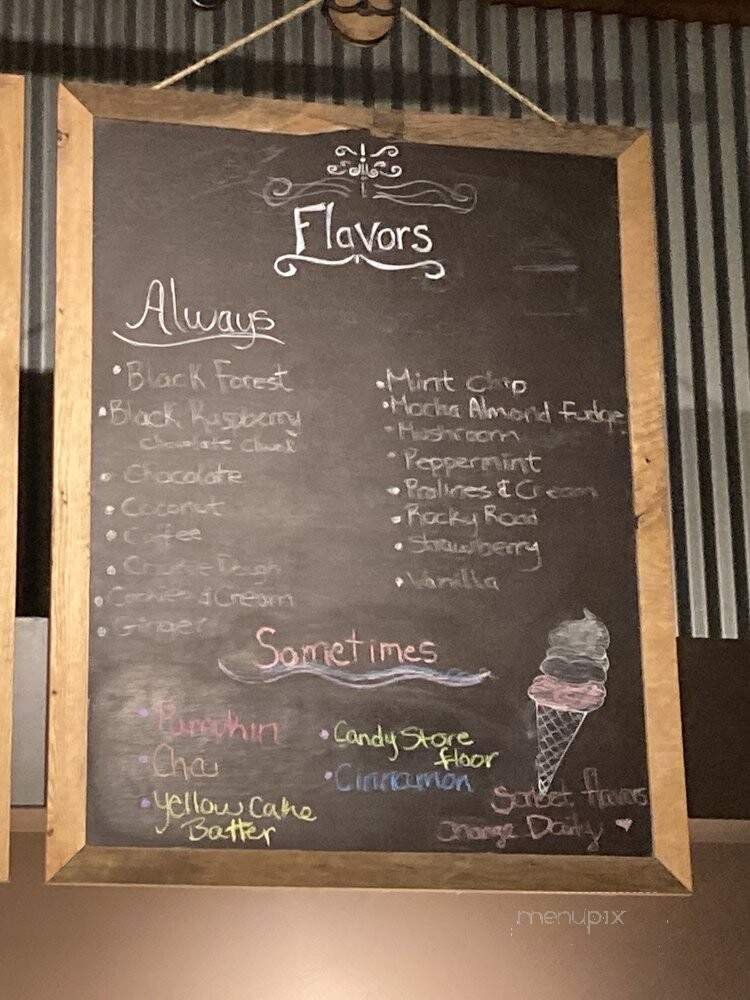 Flavors
Always
Black Forest
Black Raspberry
Chocolate Chunk
Chocolate
Coconut
Coffee
Cookie Dough
Cookies & Cream
Ginger
Mint Chip
Mocha Almond Fudge
Mushroom
Peppermint
Pralines & Cream
Rocky Road
Strawberry
Vanilla
Sometimes
Pumpkin
Chai
Yellow Cake
Batter
Candy Store
floor
Cinnamon
Sorbet flavors
change Daily
menupix